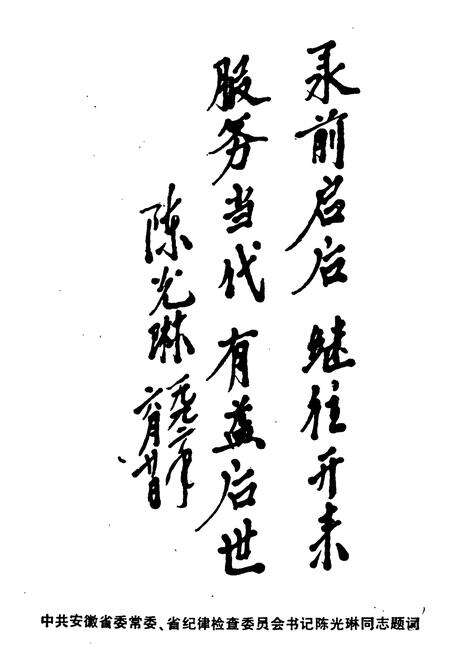 承前启后 继往开来
服务当代 有益后世
陈光琳
中共安徽省委常委、省纪律检查委员会书记陈光琳同志题词